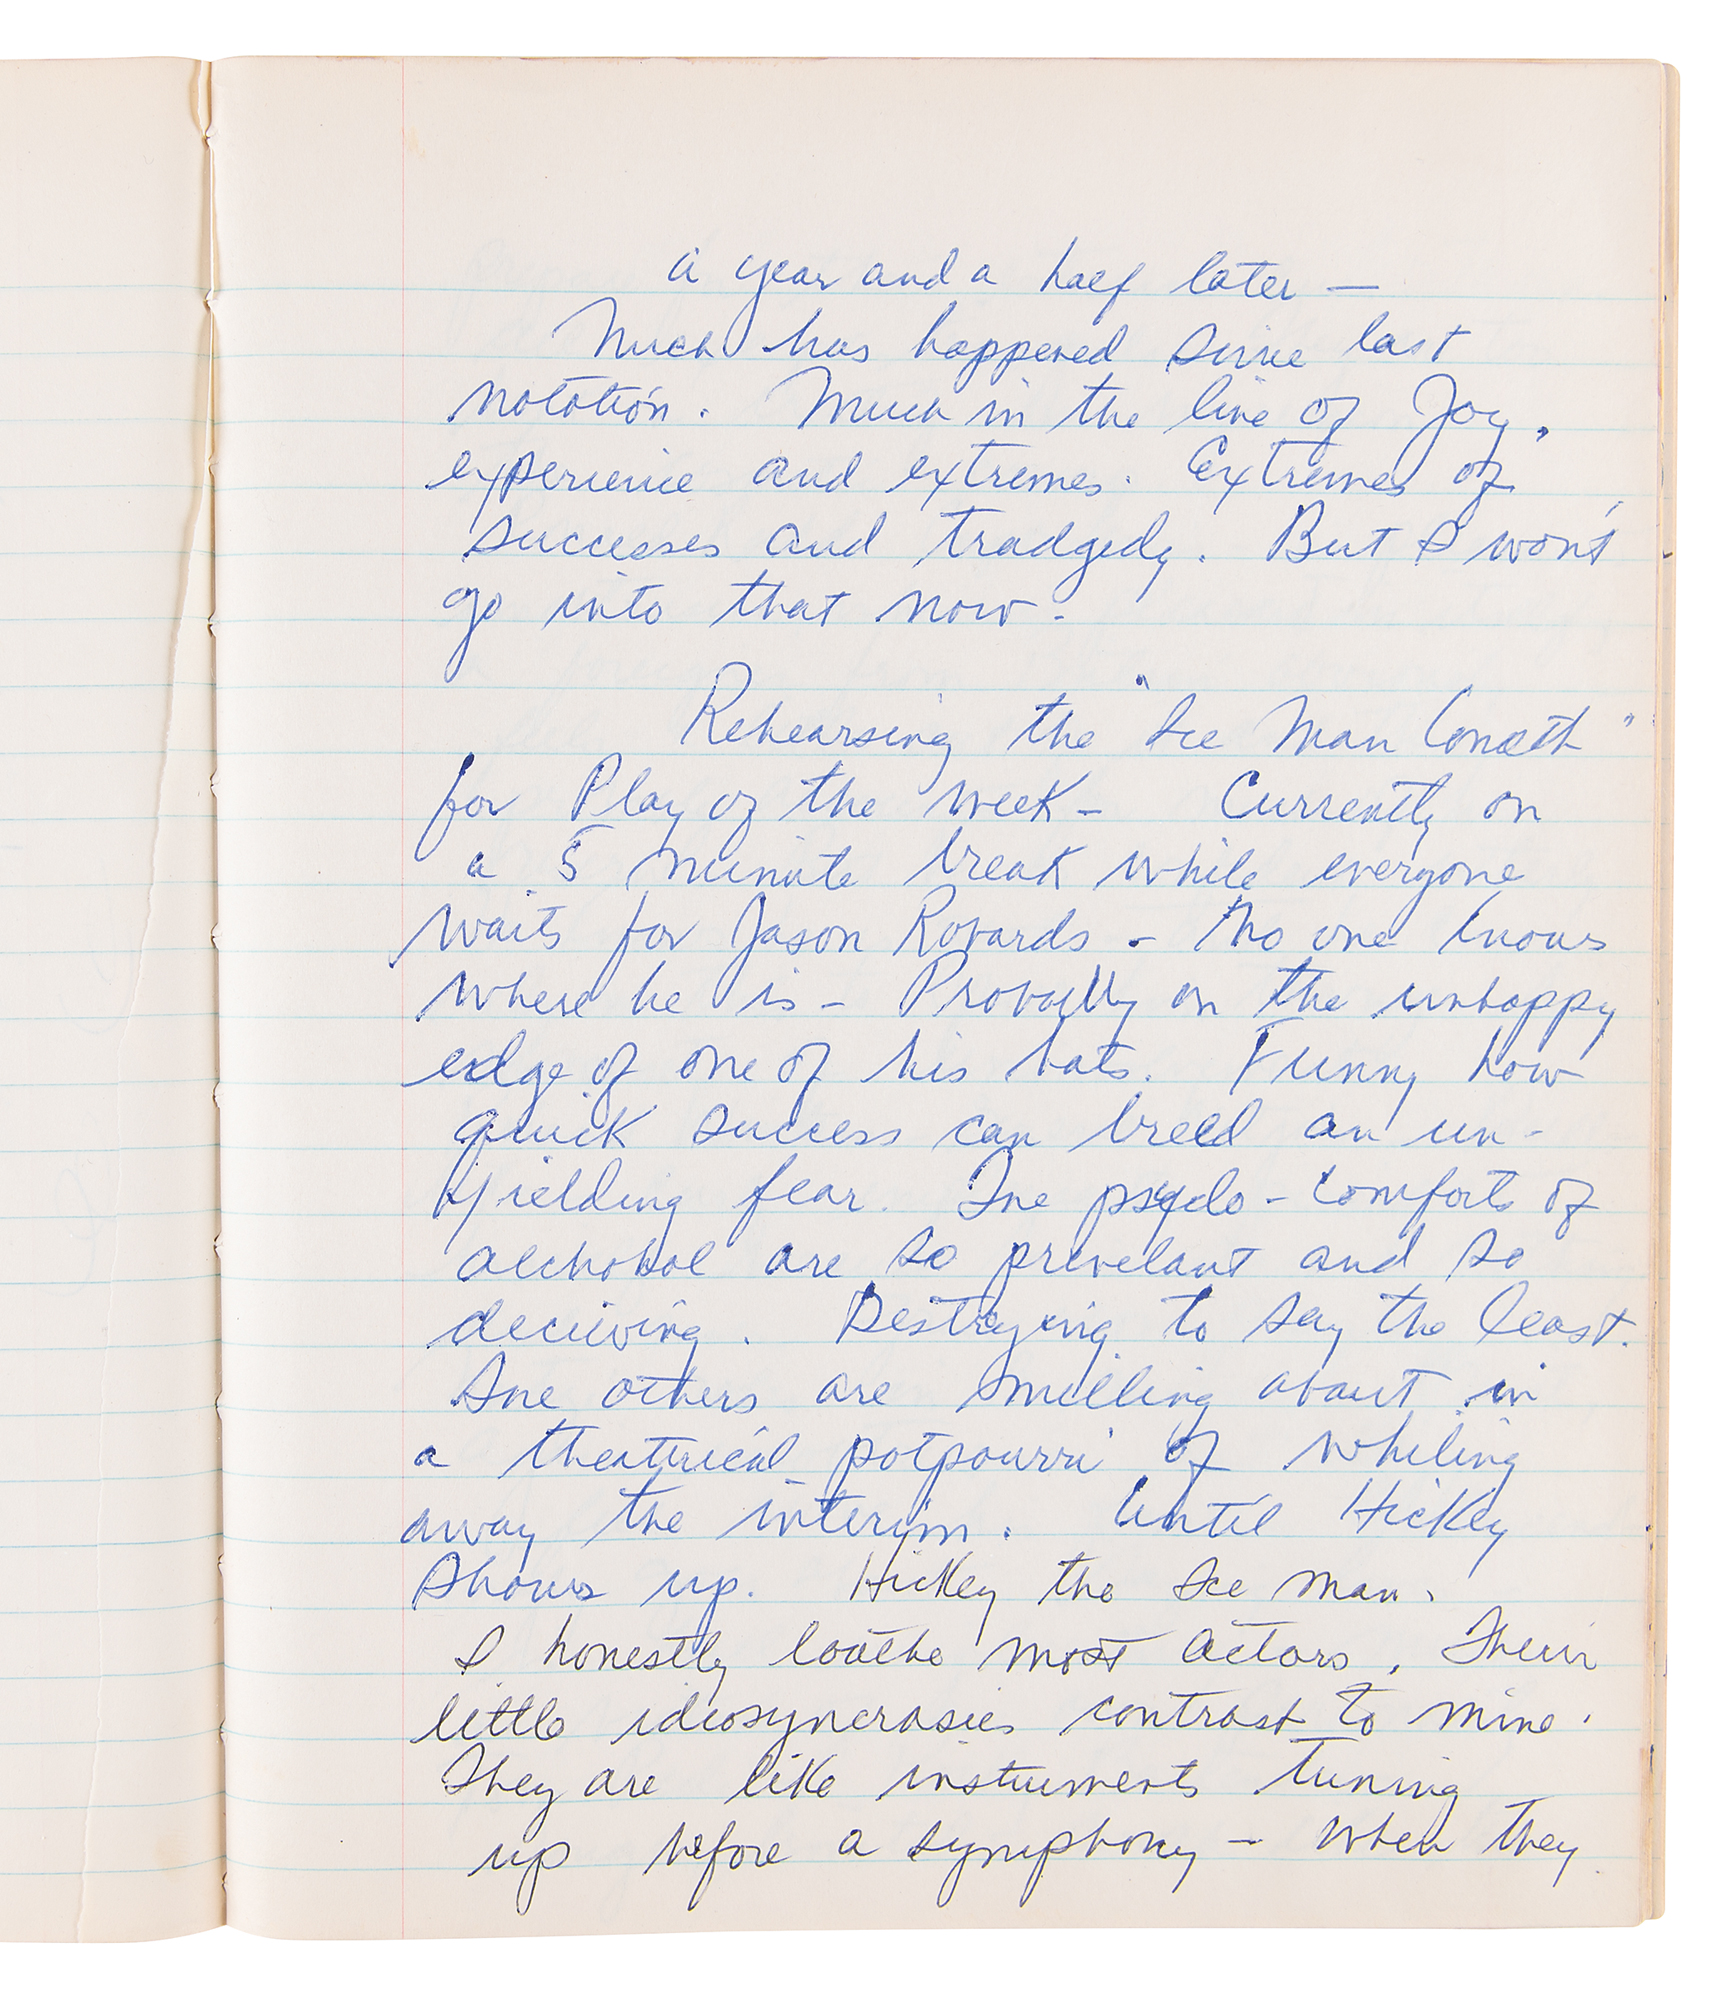 a year and a half later —
Much has happened since last
notation. Much in the line of Joy,
experience and extremes. Extremes of
successes and tradgedy. But I won't
go into that now -
Rehearsing the "Ice Man Cometh"
for Play of the week - Currently on
a 5 minute break while everyone
waits for Jason Robards - No one knows
where he is - Probably on the unhappy
edge of one of his bats. Funny how
quick success can breed an un-
yielding fear. The psydo - comforts of
alchohol are so prevelant and so
deceiving. Destroying to say the least.
The others are milling about in
a theatrical potpourri of whiling
away the interim. Until Hickey
shows up. Hickey the Ice man.
I honestly loathe most actors. Their
little idiosyncrasies contrast to mine.
They are like instruments tuning
up before a symphony - when they